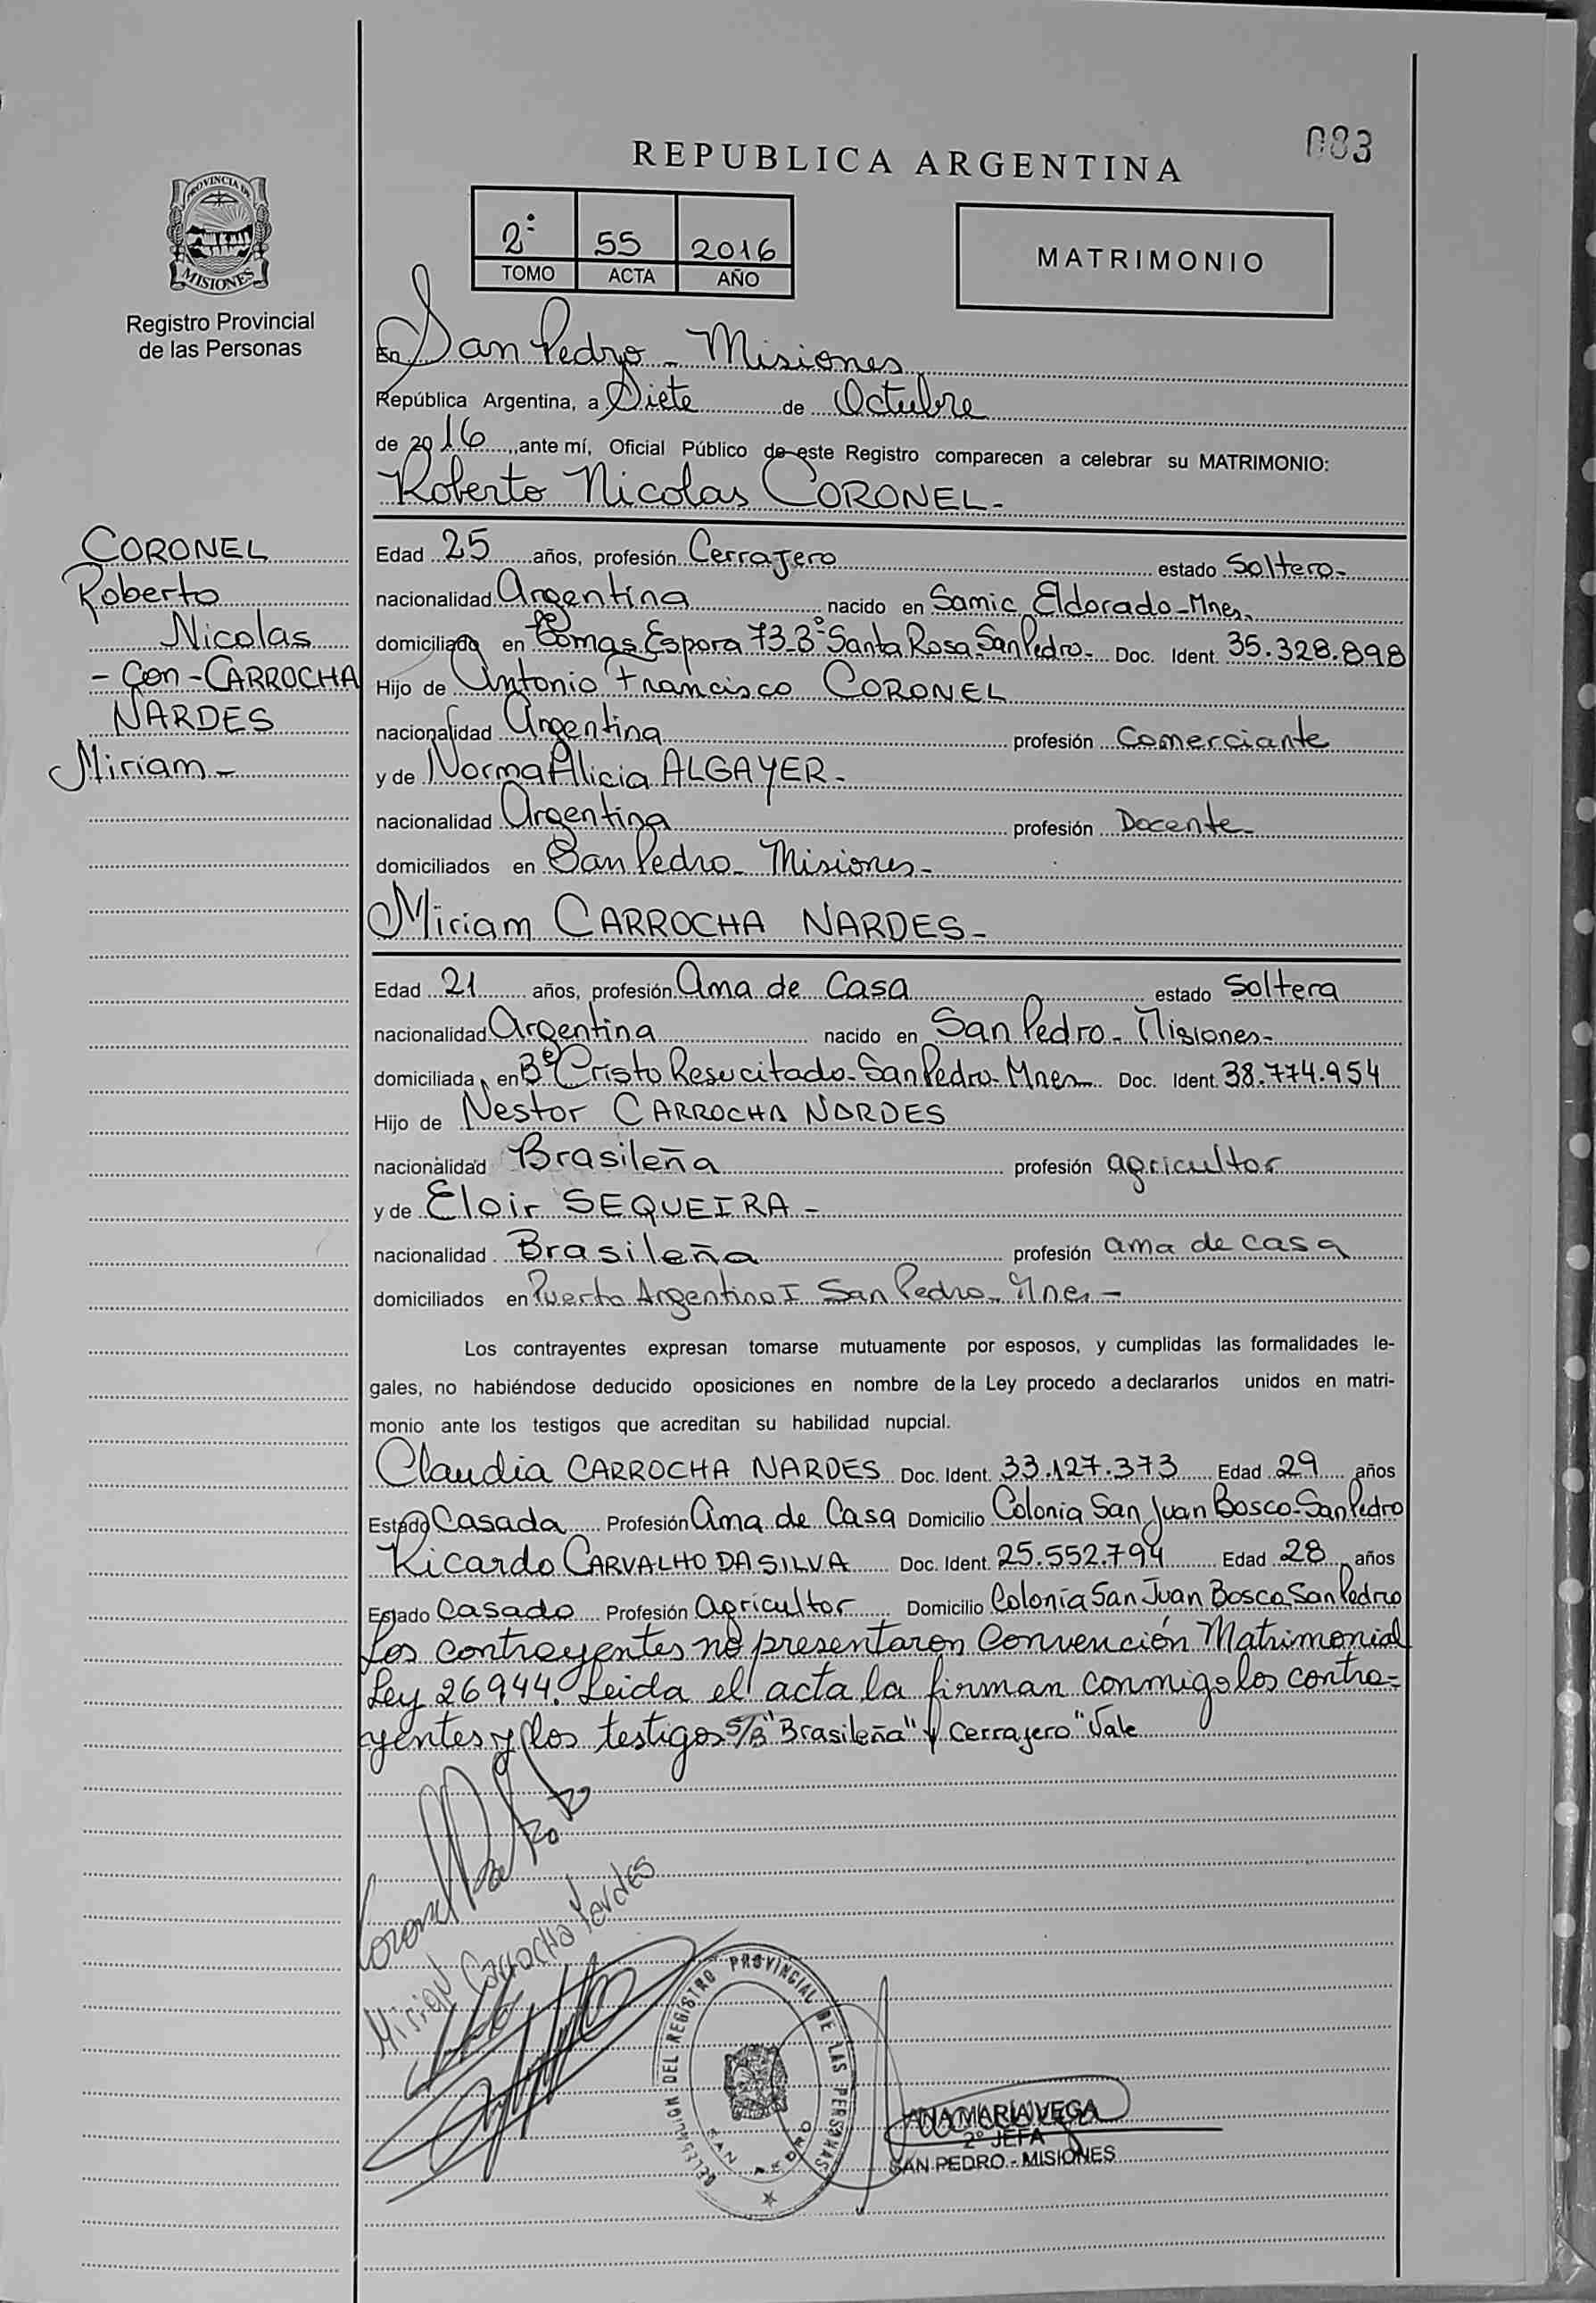 083
REPUBLICA ARGENTINA
PROVINCIA DE
MISIONES
Registro Provincial
de las Personas
2º 55 2016
TOMO ACTA AÑO
MATRIMONIO
En San Pedro - Misiones
República Argentina, a Siete de Octubre
de 2016, ante mí, Oficial Público de este Registro comparecen a celebrar su MATRIMONIO:
Roberto Nicolas CORONEL -
CORONEL
Roberto
Nicolas
- Con - CARROCHA
NARDES
Miriam -
Edad 25 años, profesión Cerrajero estado Soltero -
nacionalidad Argentina nacido en Samic Eldorado - Mnes.
domiciliado en Tomas Espora 73 - Bº Santa Rosa San Pedro - Doc. Ident. 35.328.898
Hijo de Antonio Francisco CORONEL
nacionalidad Argentina profesión Comerciante
y de Norma Alicia ALGAYER -
nacionalidad Argentina profesión Docente
domiciliados en San Pedro - Misiones -
Miriam CARROCHA NARDES -
Edad 21 años, profesión Ama de Casa estado Soltera
nacionalidad Argentina nacido en San Pedro - Misiones -
domiciliada en Bº Cristo Resucitado - San Pedro - Mnes Doc. Ident. 38.774.954
Hijo de Nestor CARROCHA NARDES
nacionalidad Brasileña profesión agricultor
y de Eloir SEQUEIRA -
nacionalidad Brasileña profesión ama de casa
domiciliados en Puerto Argentino I San Pedro - Mnes -
Los contrayentes expresan tomarse mutuamente por esposos, y cumplidas las formalidades le-
gales, no habiéndose deducido oposiciones en nombre de la Ley procedo a declararlos unidos en matri-
monio ante los testigos que acreditan su habilidad nupcial.
Claudia CARROCHA NARDES Doc. Ident. 33.127.373 Edad 29 años
Estado Casada Profesión Ama de Casa Domicilio Colonia San Juan Bosco - San Pedro
Ricardo CARVALHO DA SILVA Doc. Ident. 25.552.794 Edad 28 años
Estado Casado Profesión Agricultor Domicilio Colonia San Juan Bosco San Pedro
Los contrayentes no presentaron Convención Matrimonial
Ley 26944. Leida el acta la firman conmigo los contra-
yentes y los testigos S/B "Brasileña" y Cerrajero" Vale
Coronel Roberto
Miriam Carrocha Nardes
DELEGACION DEL REGISTRO PROVINCIAL DE LAS PERSONAS
SAN PEDRO
ANA MARIA VEGA
2º JEFA
SAN PEDRO - MISIONES